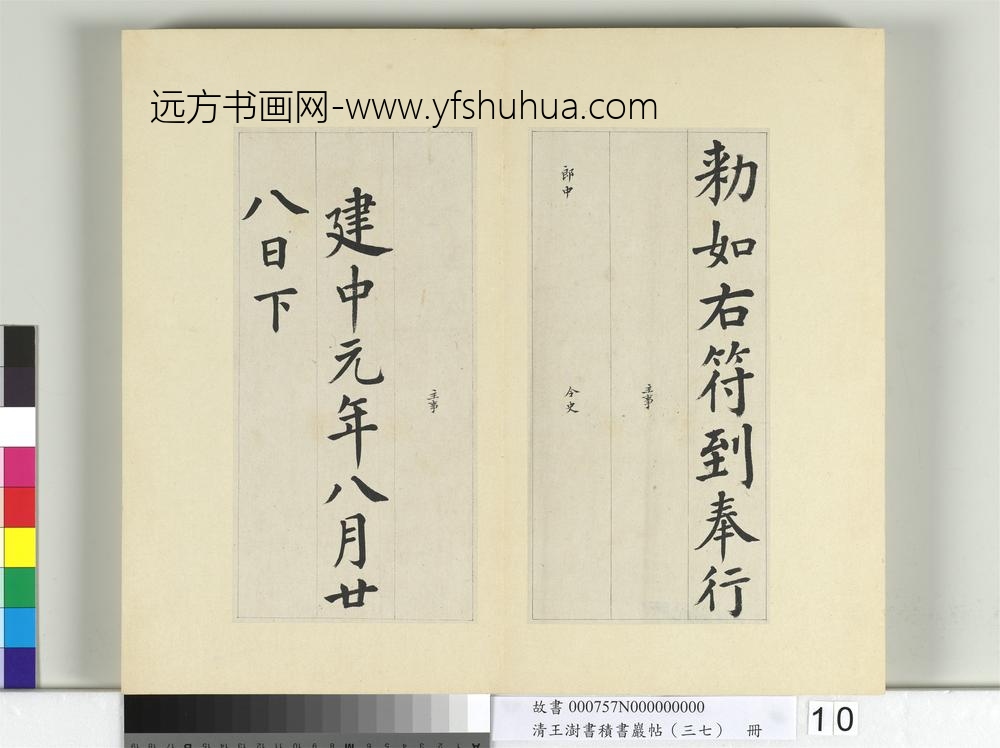 远方书画网-www.yfshuhua.com
勑如右符到奉行
主事
郎中
令史
主事
建中元年八月廿
八日下
故書 000757N000000000
清王澍書積書巖帖（三七） 冊
10